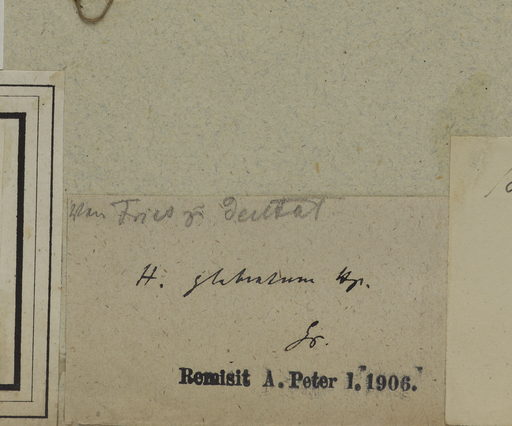 Von Fries zu dentat
H. glabratum Hp.
Gr.
Remisit A. Peter 1. 1906.